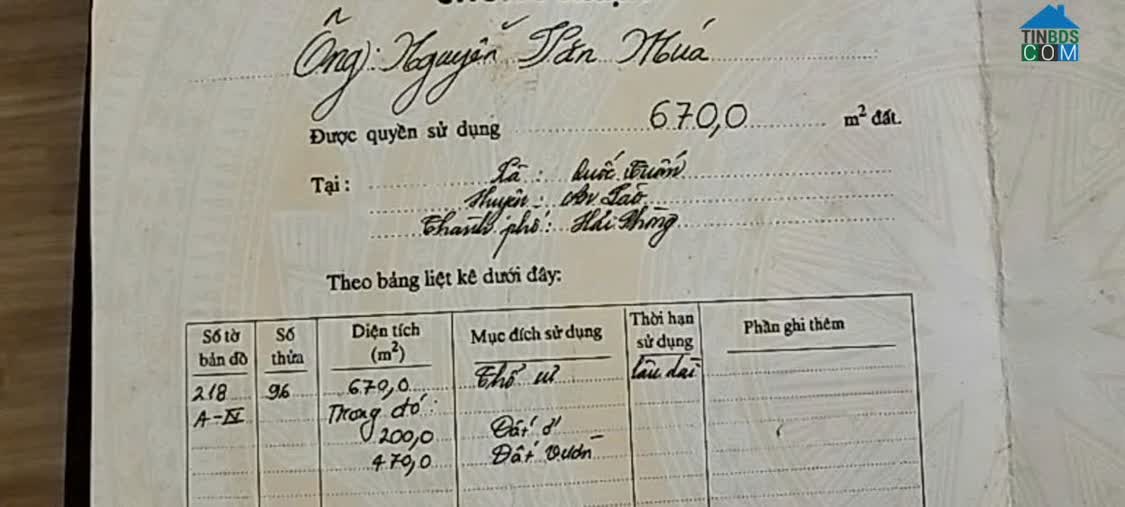 TINBDS
COM
Ông: Nguyễn Văn Múa
Được quyền sử dụng 670,0 m² đất.
Tại: Xã: Quốc Tuấn
Huyện: An Lão
Thành phố: Hải Phòng
Theo bảng liệt kê dưới đây:
Số tờ bản đồ Số thửa Diện tích (m²) Mục đích sử dụng Thời hạn sử dụng Phần ghi thêm
218 96 670,0 Thổ cư lâu dài
A-IV Trong đó:
200,0 Đất ở
470,0 Đất vườn